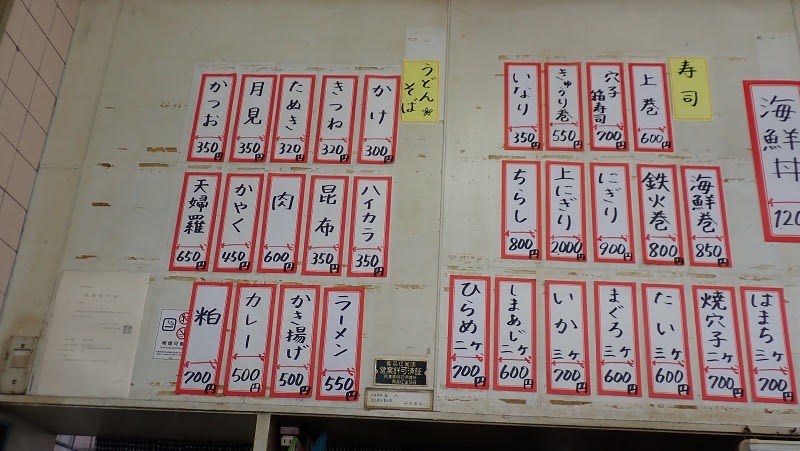 うどん
そば
かけ 300円
きつね 320円
たぬき 320円
月見 350円
かつお 350円
ハイカラ 350円
昆布 350円
肉 600円
かやく 450円
天婦羅 650円
ラーメン 550円
かき揚げ 500円
カレー 500円
粕 700円
寿司
上巻 600円
穴子箱寿司 700円
きゅうり巻 550円
いなり 350円
海鮮巻 850円
鉄火巻 800円
にぎり 900円
上にぎり 2000円
ちらし 800円
はまち 三ケ 700円
焼穴子 二ケ 700円
たい 三ケ 600円
まぐろ 三ケ 600円
いか 三ケ 600円
しまあじ 二ケ 600円
ひらめ 二ケ 700円
海鮮丼
120
食品衛生法
営業許可済証